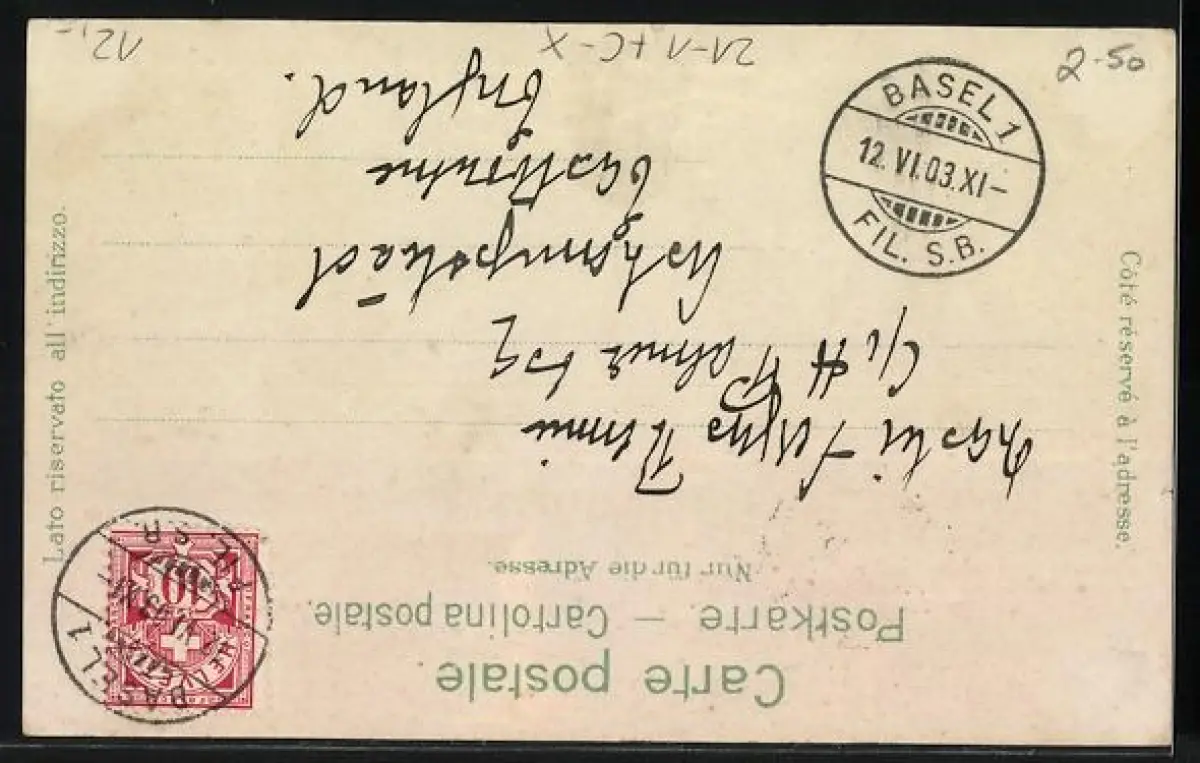 Carte postale.
Postkarte. — Cartolina postale.
Nur für die Adresse.
Côté réservé à l'adresse.
Lato riservato all'indirizzo.
Palmer Esq
Eastbourne
England.
BASEL 1
12. VI. 03. XI–
FIL. S.B.
BASEL 1
HELVETIA
10
2-50
21-1+C-X
12,-